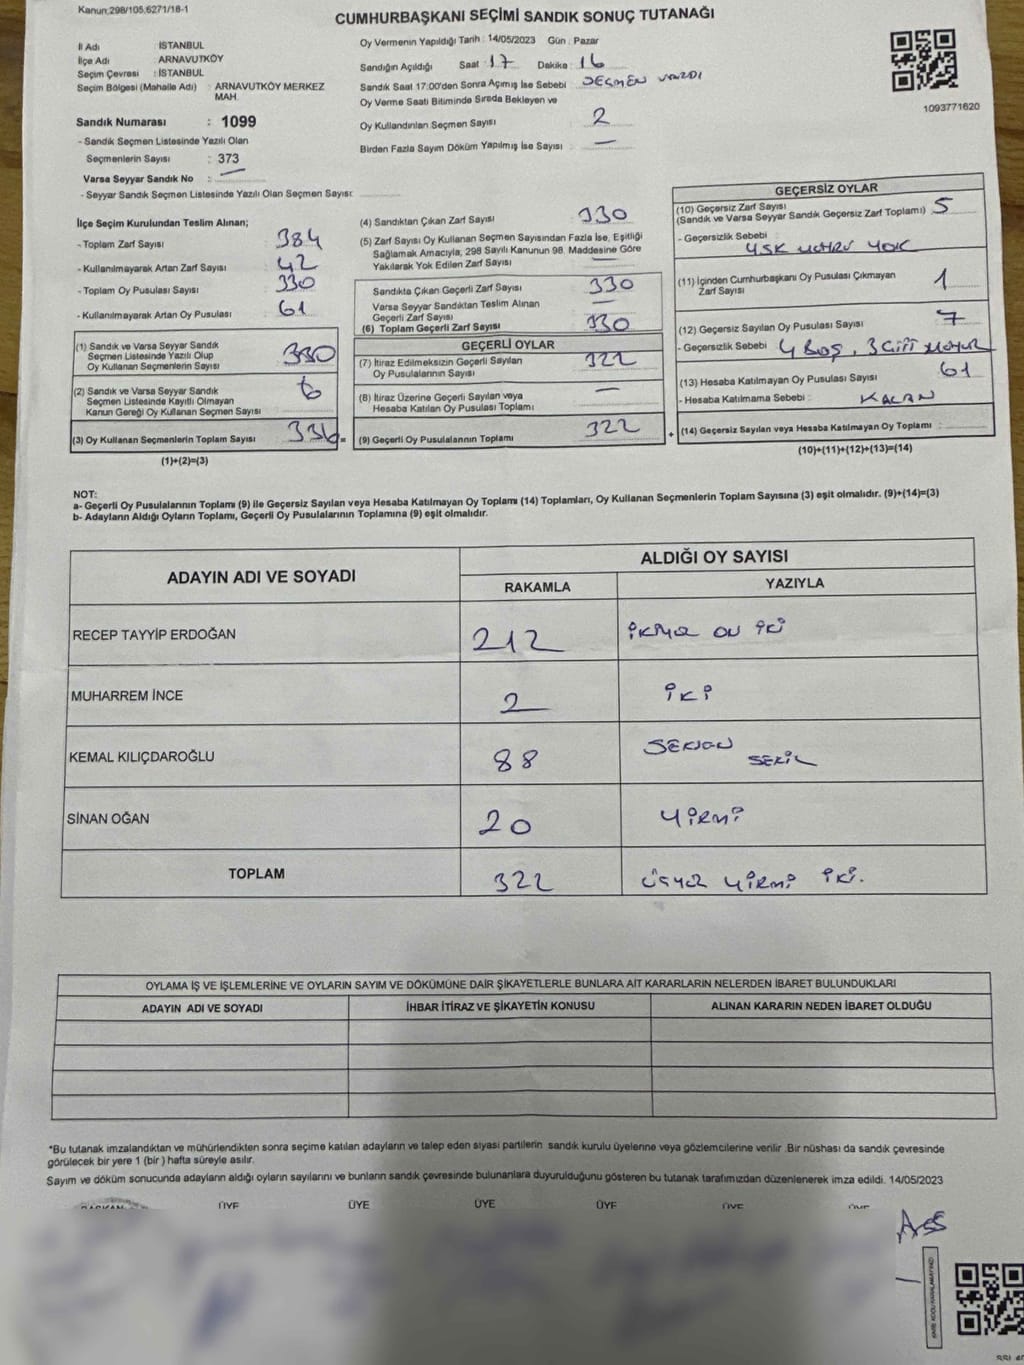 Kanun:298/105,6271/18-1
CUMHURBAŞKANI SEÇİMİ SANDIK SONUÇ TUTANAĞI
İl Adı : İSTANBUL
İlçe Adı : ARNAVUTKÖY
Seçim Çevresi : İSTANBUL
Seçim Bölgesi (Mahalle Adı) : ARNAVUTKÖY MERKEZ MAH.
Sandık Numarası : 1099
- Sandık Seçmen Listesinde Yazılı Olan
Seçmenlerin Sayısı : 373
Varsa Seyyar Sandık No : —
- Seyyar Sandık Seçmen Listesinde Yazılı Olan Seçmen Sayısı:
Oy Vermenin Yapıldığı Tarih : 14/05/2023 Gün : Pazar
Sandığın Açıldığı Saat : 17 Dakika : 16
Sandık Saat 17:00'den Sonra Açımış İse Sebebi : SEÇMEN VARDI
Oy Verme Saati Bitiminde Sırada Bekleyen ve
Oy Kullandırılan Seçmen Sayısı : 2
Birden Fazla Sayım Döküm Yapılmış İse Sayısı : —
1093771620
İlçe Seçim Kurulundan Teslim Alınan;
- Toplam Zarf Sayısı : 384
- Kullanılmayarak Artan Zarf Sayısı : 42
- Toplam Oy Pusulası Sayısı : 330
- Kullanılmayarak Artan Oy Pusulası : 61
(1) Sandık ve Varsa Seyyar Sandık
Seçmen Listesinde Yazılı Olup
Oy Kullanan Seçmenlerin Sayısı : 330
(2) Sandık ve Varsa Seyyar Sandık
Seçmen Listesinde Kayıtlı Olmayan
Kanun Gereği Oy Kullanan Seçmen Sayısı : 6
(3) Oy Kullanan Seçmenlerin Toplam Sayısı : 336 =
(1)+(2)=(3)
(4) Sandıktan Çıkan Zarf Sayısı : 330
(5) Zarf Sayısı Oy Kullanan Seçmen Sayısından Fazla İse, Eşitliği
Sağlamak Amacıyla, 298 Sayılı Kanunun 98. Maddesine Göre
Yakılarak Yok Edilen Zarf Sayısı : —
Sandıkta Çıkan Geçerli Zarf Sayısı : 330
Varsa Seyyar Sandıktan Teslim Alınan
Geçerli Zarf Sayısı : —
(6) Toplam Geçerli Zarf Sayısı : 330
GEÇERLİ OYLAR
(7) İtiraz Edilmeksizin Geçerli Sayılan
Oy Pusulalarının Sayısı : 322
(8) İtiraz Üzerine Geçerli Sayılan veya
Hesaba Katılan Oy Pusulası Toplamı : —
(9) Geçerli Oy Pusulalarının Toplamı : 322 +
GEÇERSİZ OYLAR
(10) Geçersiz Zarf Sayısı
(Sandık ve Varsa Seyyar Sandık Geçersiz Zarf Toplamı) : 5
- Geçersizlik Sebebi : YSK MÜHRÜ YOK
(11) İçinden Cumhurbaşkanı Oy Pusulası Çıkmayan
Zarf Sayısı : 1
(12) Geçersiz Sayılan Oy Pusulası Sayısı : 7
- Geçersizlik Sebebi : 4 BOŞ, 3 ÇİFT MÜHÜR
(13) Hesaba Katılmayan Oy Pusulası Sayısı : 61
- Hesaba Katılmama Sebebi : KALAN
(14) Geçersiz Sayılan veya Hesaba Katılmayan Oy Toplamı :
(10)+(11)+(12)+(13)=(14)
NOT:
a- Geçerli Oy Pusulalarının Toplamı (9) ile Geçersiz Sayılan veya Hesaba Katılmayan Oy Toplamı (14) Toplamları, Oy Kullanan Seçmenlerin Toplam Sayısına (3) eşit olmalıdır. (9)+(14)=(3)
b- Adayların Aldığı Oyların Toplamı, Geçerli Oy Pusulalarının Toplamına (9) eşit olmalıdır.
ADAYIN ADI VE SOYADI
ALDIĞI OY SAYISI
RAKAMLA YAZIYLA
RECEP TAYYİP ERDOĞAN 212 İKİYÜZ ON İKİ
MUHARREM İNCE 2 İKİ
KEMAL KILIÇDAROĞLU 88 SEKSEN SEKİZ
SİNAN OĞAN 20 YİRMİ
TOPLAM 322 ÜÇYÜZ YİRMİ İKİ.
OYLAMA İŞ VE İŞLEMLERİNE VE OYLARIN SAYIM VE DÖKÜMÜNE DAİR ŞİKAYETLERLE BUNLARA AİT KARARLARIN NELERDEN İBARET BULUNDUKLARI
ADAYIN ADI VE SOYADI İHBAR İTİRAZ VE ŞİKAYETİN KONUSU ALINAN KARARIN NEDEN İBARET OLDUĞU
*Bu tutanak imzalandıktan ve mühürlendikten sonra seçime katılan adayların ve talep eden siyasi partilerin sandık kurulu üyelerine veya gözlemcilerine verilir. Bir nüshası da sandık çevresinde
görülecek bir yere 1 (bir) hafta süreyle asılır.
Sayım ve döküm sonucunda adayların aldığı oyların sayılarını ve bunların sandık çevresinde bulunanlara duyurulduğunu gösteren bu tutanak tarafımızdan düzenlenerek imza edildi. 14/05/2023
BAŞKAN ÜYE ÜYE ÜYE ÜYE ÜYE ÜYE